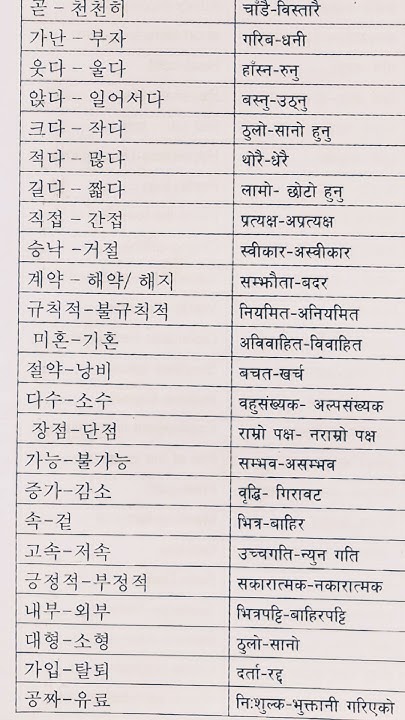 곧 – 천천히 चाँडै-विस्तारै
가난 – 부자 गरिब-धनी
웃다 – 울다 हाँस्न-रुनु
앉다 – 일어서다 बस्नु-उठ्नु
크다 – 작다 ठुलो-सानो हुनु
적다 – 많다 थोरै-धेरै
길다 – 짧다 लामो- छोटो हुनु
직접 – 간접 प्रत्यक्ष-अप्रत्यक्ष
승낙 –거절 स्वीकार-अस्वीकार
계약 – 해약/ 해지 सम्झौता-बदर
규칙적-불규칙적 नियमित-अनियमित
미혼-기혼 अविवाहित-विवाहित
절약-낭비 बचत-खर्च
다수-소수 वहुसंख्यक- अल्पसंख्यक
장점-단점 राम्रो पक्ष- नराम्रो पक्ष
가능-불가능 सम्भव-असम्भव
증가-감소 वृद्धि- गिरावट
속-겉 भित्र-बाहिर
고속-저속 उच्चगति-न्युन गति
긍정적-부정적 सकारात्मक-नकारात्मक
내부-외부 भित्रपट्टि-बाहिरपट्टि
대형-소형 ठुलो-सानो
가입-탈퇴 दर्ता-रद्द
공짜-유료 नि:शुल्क-भुक्तानी गरिएको